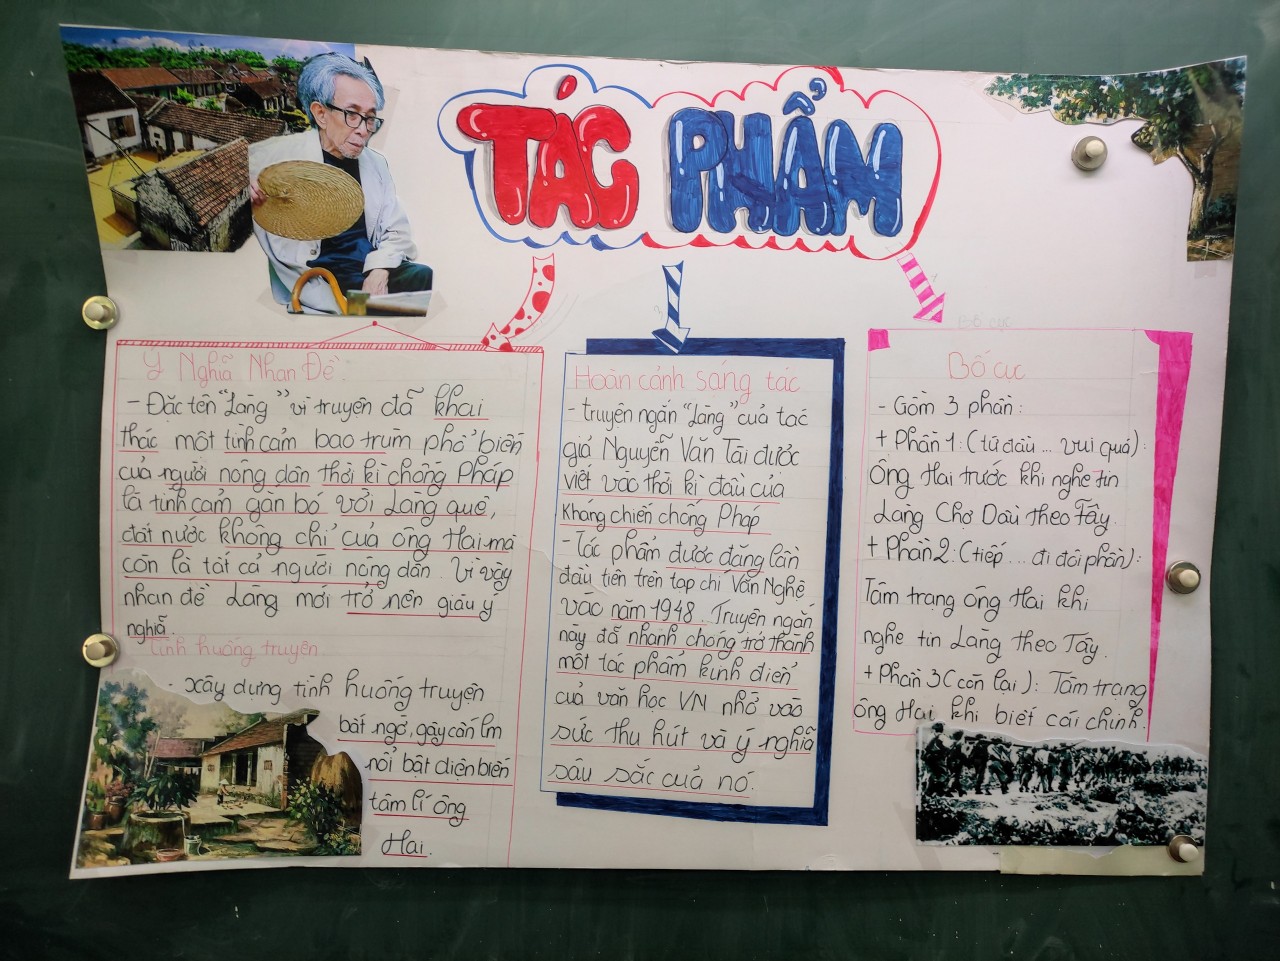 TÁC PHẨM
Ý Nghĩa Nhan Đề:
- Đặc tên "Làng" vì truyện đã khai
thác một tình cảm bao trùm phổ biến
của người nông dân thời kì chống Pháp
là tình cảm gắn bó với Làng quê,
đất nước không chỉ của ông Hai mà
còn là tất cả người nông dân. Vì vậy
nhan đề Làng mới trở nên giàu ý
nghĩa.
Tình huống truyện
- Xây dựng tình huống truyện
bất ngờ, gây cấn làm
nổi bật diện biến
tâm lí ông
Hai.
Hoàn cảnh sáng tác
- truyện ngắn "Làng" của tác
giả Nguyễn Văn Tài được
viết vào thời kì đầu của
kháng chiến chống Pháp
- Tác phẩm được đăng lần
đầu tiên trên tạp chí Văn Nghệ
vào năm 1948. Truyện ngắn
này đã nhanh chóng trở thành
một tác phẩm kinh điển
của văn học VN nhờ vào
sức thu hút và ý nghĩa
sâu sắc của nó.
Bố cục
Bố cục
- Gồm 3 phần:
+ Phần 1: (từ đầu ... vui quá):
Ông Hai trước khi nghe tin
Làng Chợ Dầu theo Tây.
+ Phần 2: (tiếp .... đi đôi phần):
Tâm trạng ông Hai khi
nghe tin Làng theo Tây.
+ Phần 3 (còn lại): Tâm trạng
ông Hai khi biết cải chính.